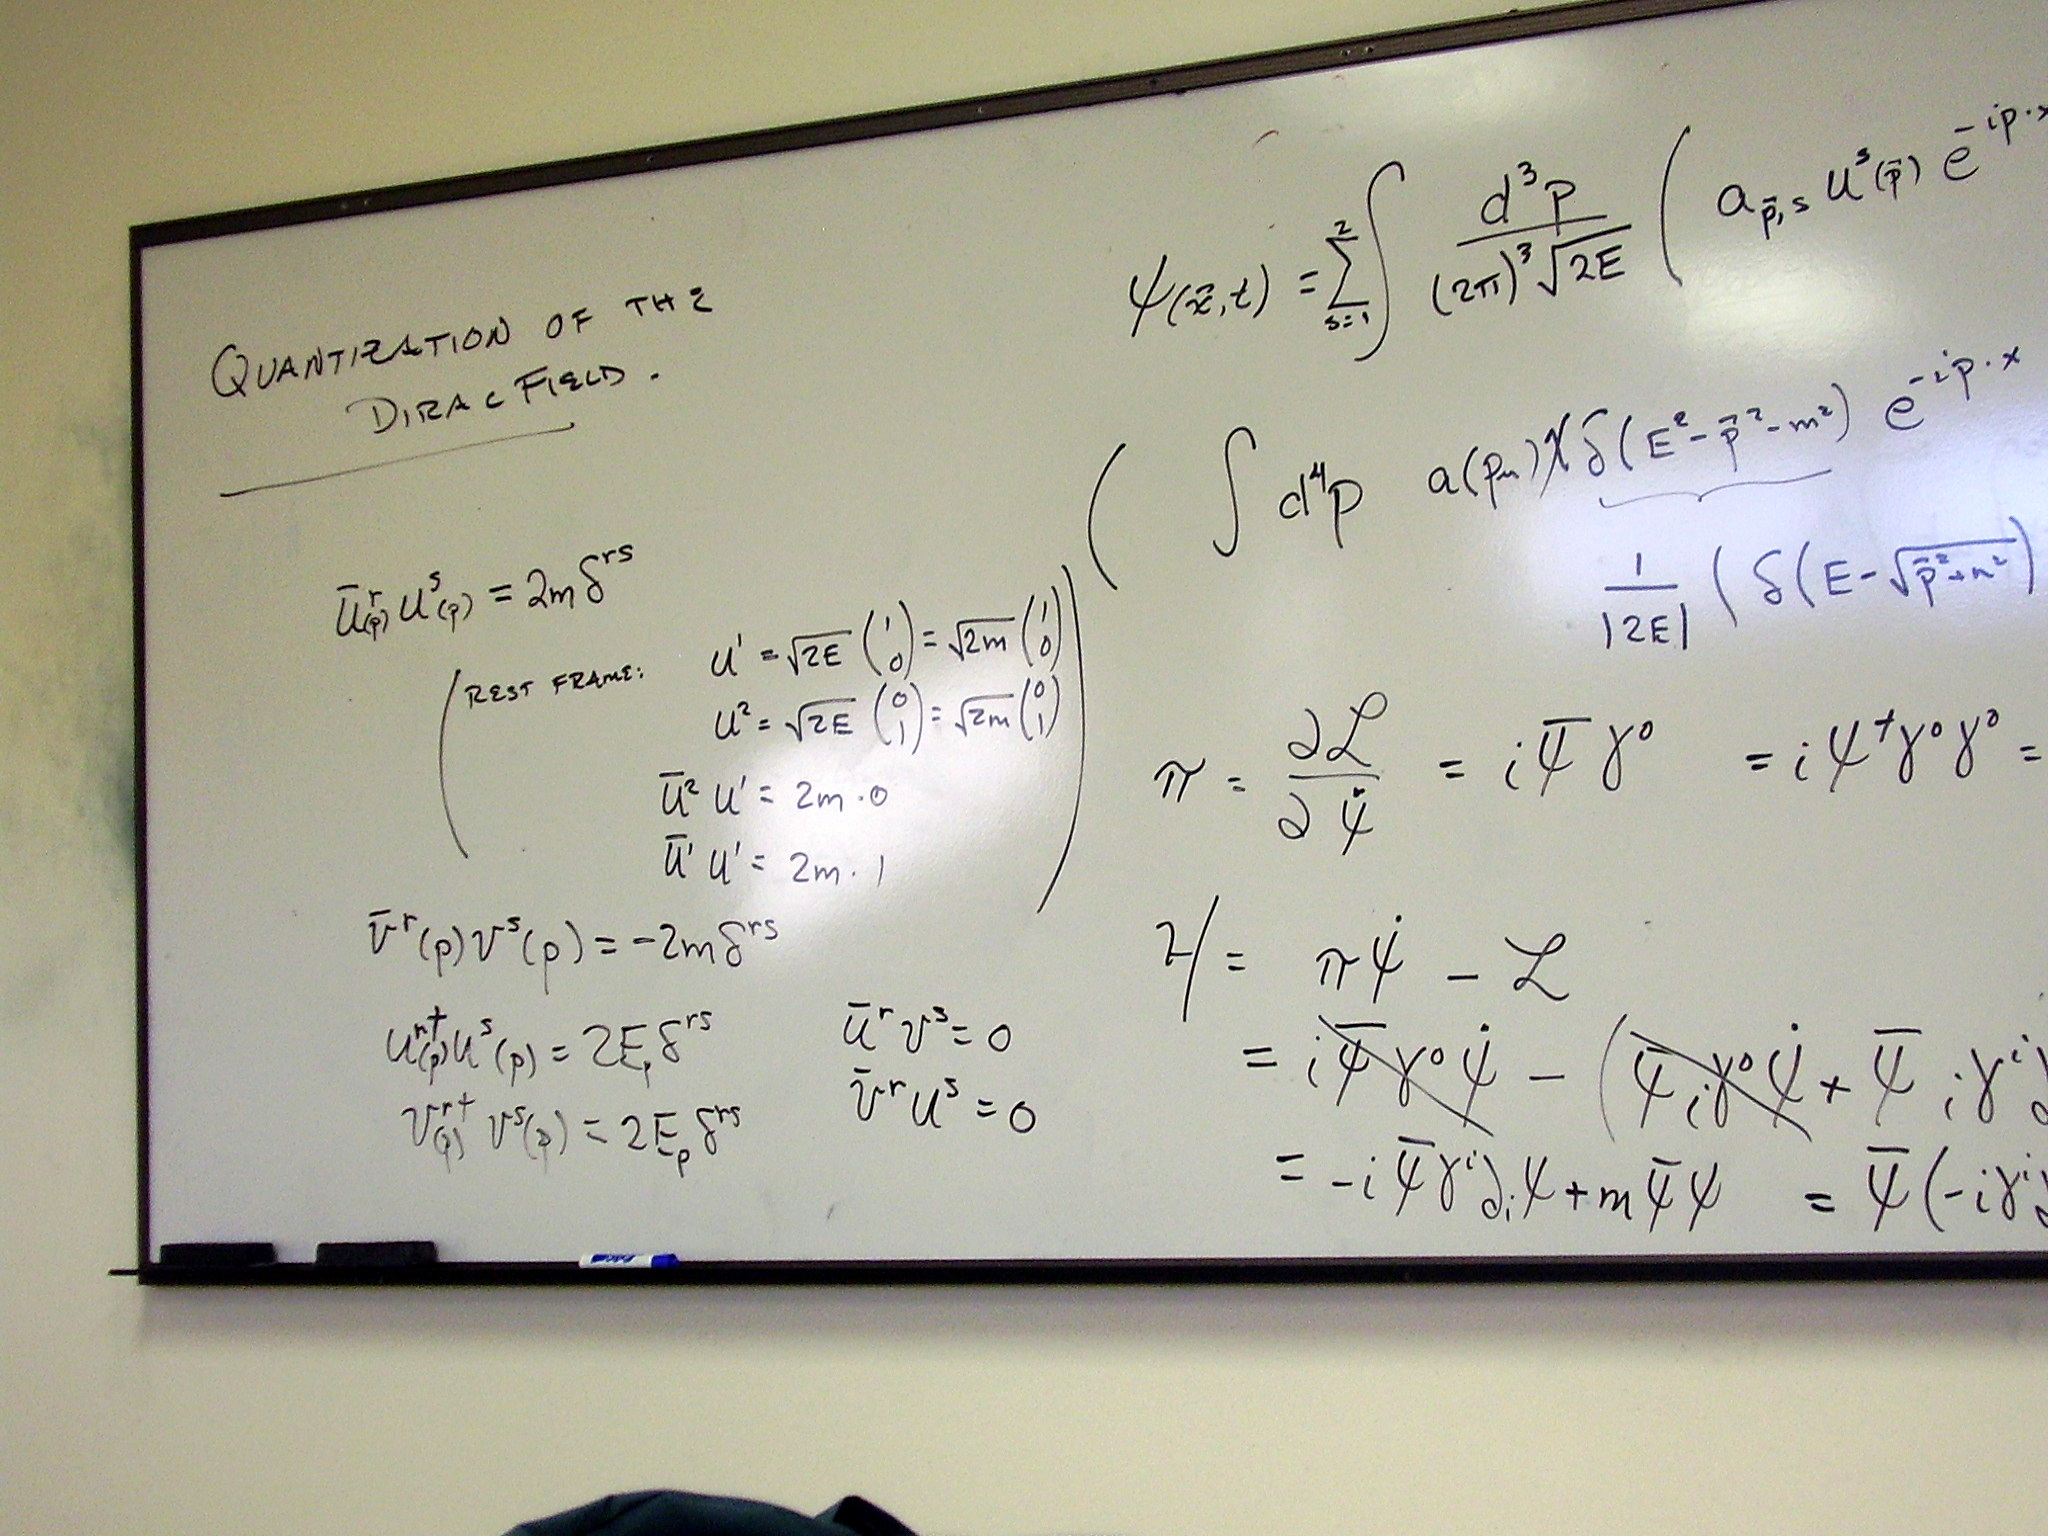 QUANTIZATION OF THE
DIRAC FIELD.
ū^r(p) u^s(p) = 2m δ^rs
( REST FRAME: u¹ = √2E (1 0) = √2m (1 0)
u² = √2E (0 1) = √2m (0 1)
ū² u¹ = 2m · 0
ū¹ u¹ = 2m · 1 )
v̄^r(p) v^s(p) = -2m δ^rs
u^r†(p) u^s(p) = 2E_p δ^rs
v^r†(p) v^s(p) = 2E_p δ^rs
ū^r v^s = 0
v̄^r u^s = 0
ψ(x̄,t) = Σ_{s=1}^{2} ∫ d³p / (2π)³ √2E ( a_{p̄,s} u^s(p̄) e^{-ip·x
( ∫ d⁴p a(pμ) δ(E² - p̄² - m²) e^{-ip·x
1/|2E| ( δ(E - √p̄²+m²)
π = ∂ℒ/∂ψ̇ = i ψ̄ γ⁰ = i ψ† γ⁰ γ⁰ =
ℋ = π ψ̇ - ℒ
= i ψ̄ γ⁰ ψ̇ - ( ψ̄ i γ⁰ ψ̇ + ψ̄ i γ^i ∂
= -i ψ̄ γ^i ∂_i ψ + m ψ̄ ψ = ψ̄ (-i γ^i ∂